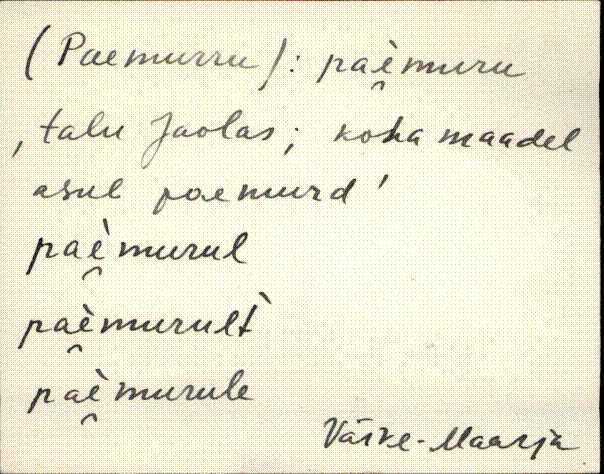 (Paemurru): paè̯muru
‚talu Jaolas; koha maadel
asub paemurd'
paè̯murul
paè̯murult̀
paè̯murule
Väike-Maarja